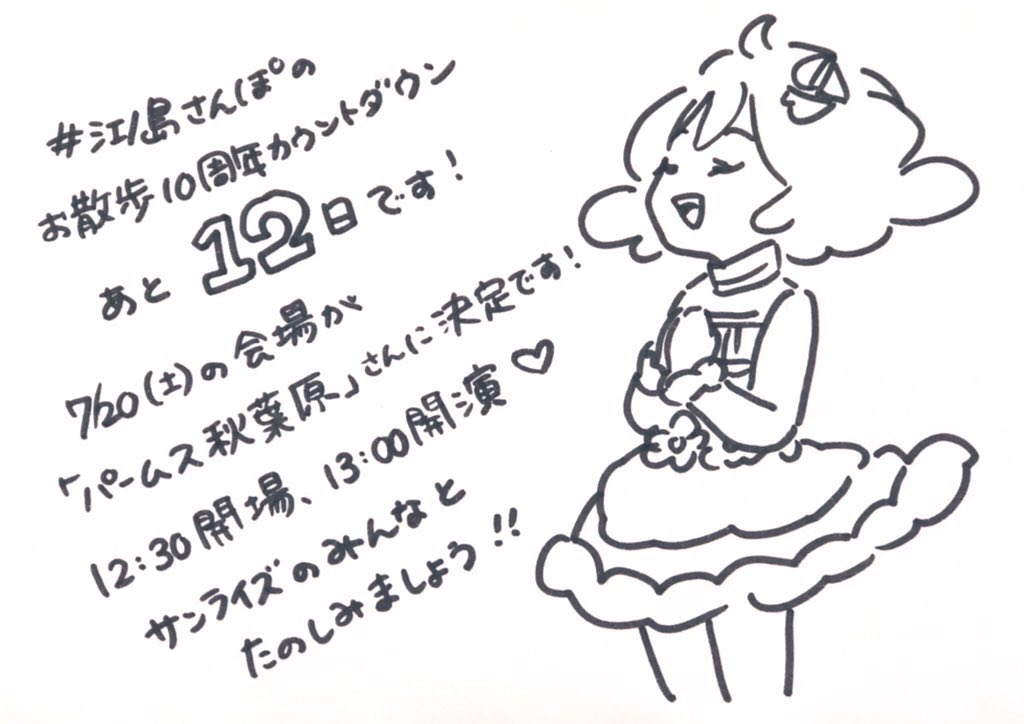 #江ノ島さんぽの
お散歩10周年カウントダウン
あと12日です!
7/20(土)の会場が
「パームス秋葉原」さんに決定です!
12:30開場、13:00開演♡
サンライズのみんなと
たのしみましょう!!